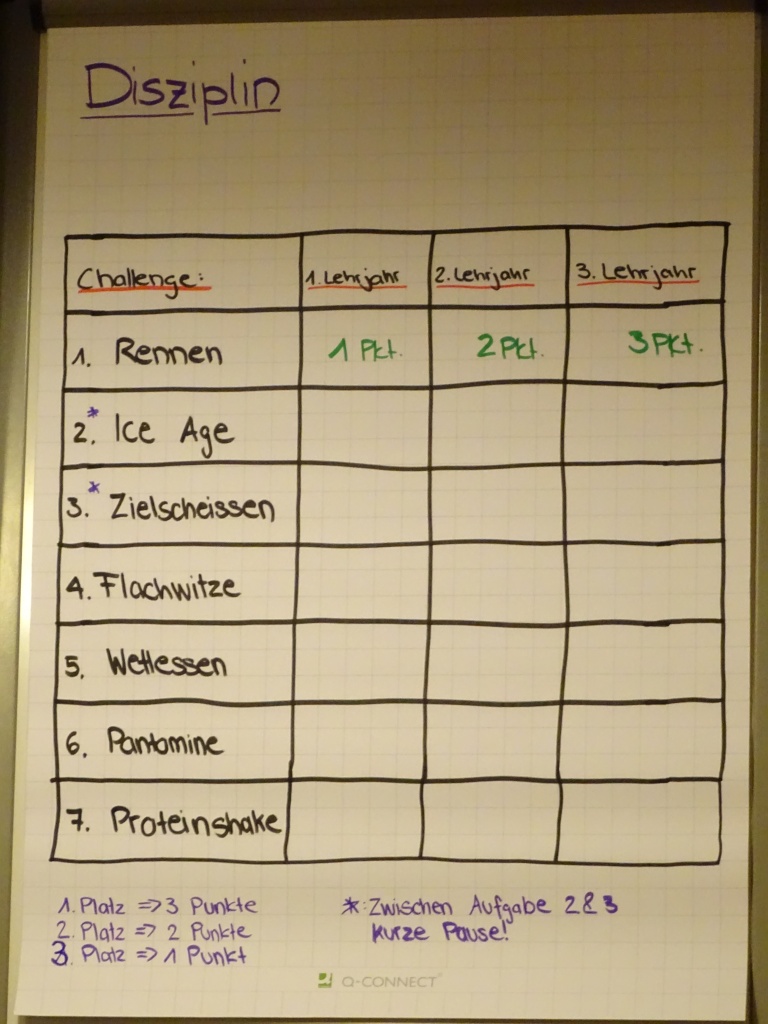 Disziplin
Challenge: 1. Lehrjahr 2. Lehrjahr 3. Lehrjahr
1. Rennen 1 Pkt. 2 Pkt. 3 Pkt.
2.* Ice Age
3.* Zielscheissen
4. Flachwitze
5. Wettessen
6. Pantomine
7. Proteinshake
1. Platz => 3 Punkte
2. Platz => 2 Punkte
3. Platz => 1 Punkt
*: Zwischen Aufgabe 2 & 3
kurze Pause!
Q-CONNECT